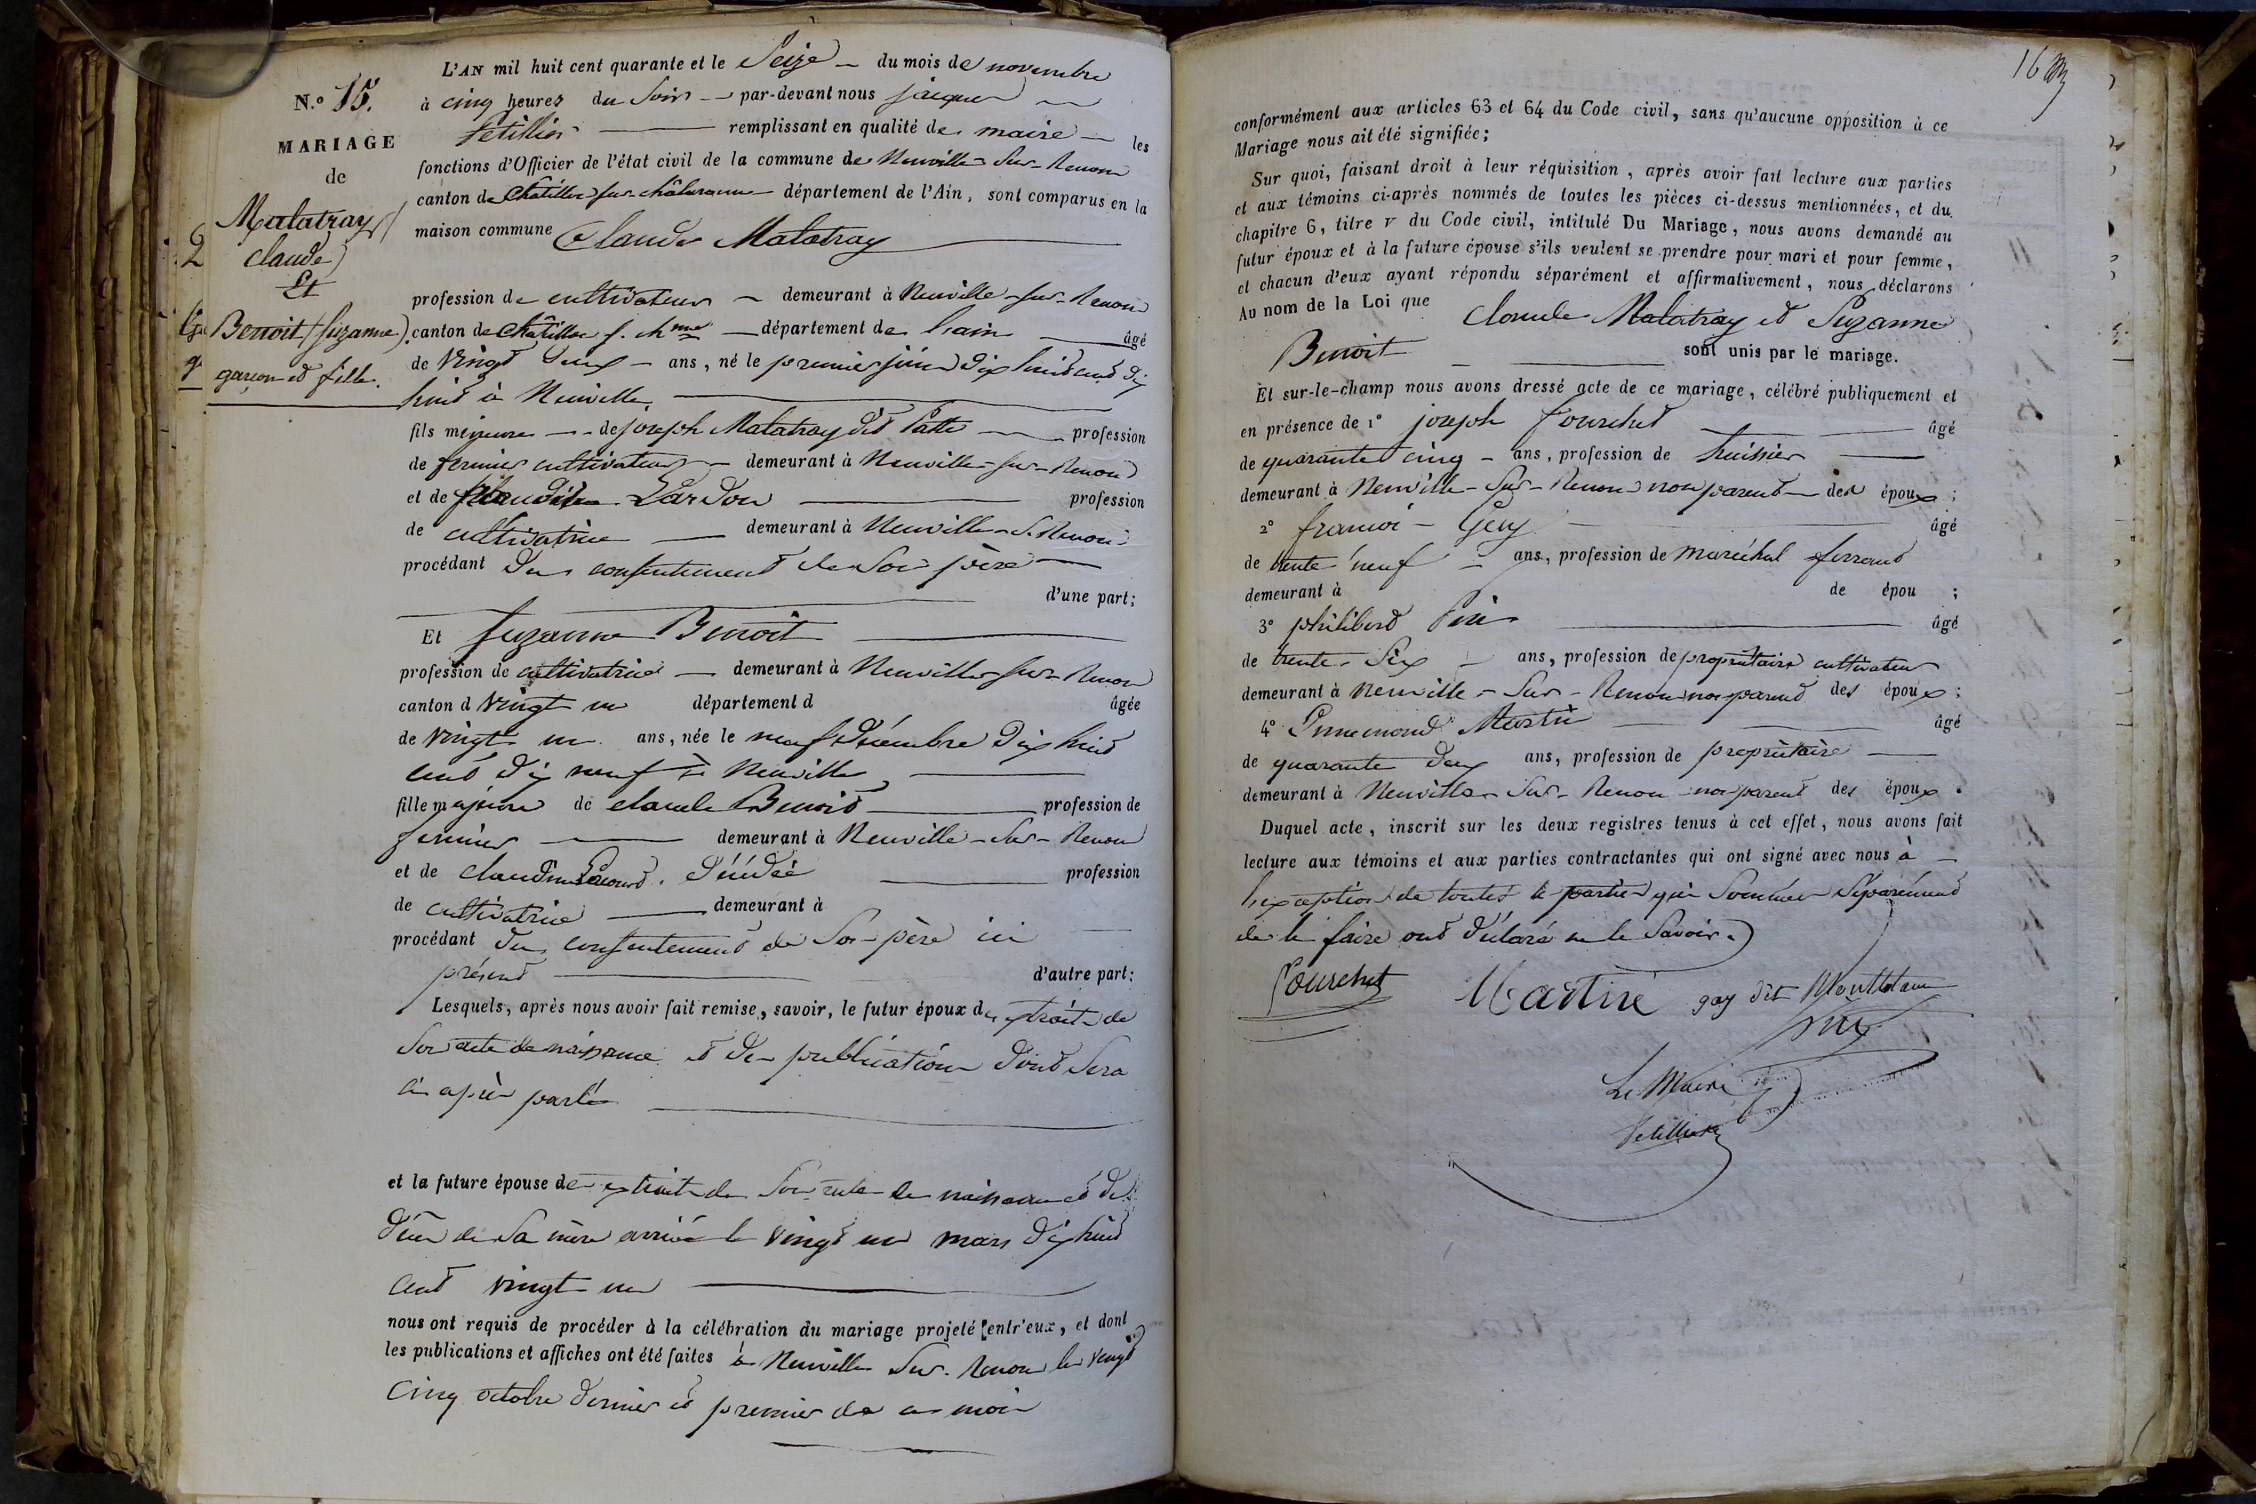 N.º 15.
MARIAGE
de
Malatray
claude
Et
Benoit (Suzanne).
garçon et fille.
L'AN mil huit cent quarante et le Seize du mois de novembre
à cinq heures du Soir par-devant nous jacques
remplissant en qualité de maire les
fonctions d'Officier de l'état civil de la commune de Neuville-Sur-Renom
canton de Châtillon sur châlaronne département de l'Ain, sont comparus en la
maison commune Claude Malatray
profession de cultivateur demeurant à Neuville-sur-Renom
canton de Châtillon s. chnne département de L'ain âgé
de vingt deux ans, né le premier juin dix huit cent dix
huit à Neuville
fils mineur de joseph Malatray dit Patte profession
de fermier cultivateur demeurant à Neuville-sur-Renom
et de Claudine Lardon profession
de cultivatrice demeurant à Neuville-s.Renom
procédant du consentement de Son père
d'une part;
Et Suzanne Benoit
profession de cultivatrice demeurant à Neuville sur-Renom
canton d vingt un département d âgée
de vingt un ans, née le neuf décembre dix huit
cent dix neuf à Neuville
fille majeure de claude Benoit profession de
fermier demeurant à Neuville-Sur-Renom
et de claudine décédée profession
de cultivatrice demeurant à
procédant du consentement de Son père ici
présent d'autre part;
Lesquels, après nous avoir fait remise, savoir, le futur époux de extrait de
Son acte de naissance et des publications dont Sera
ci après parlé
et la future épouse de extrait de Son acte de naissance et de
décès de Sa mère arrivé le vingt un mars dix huit
cent vingt un
nous ont requis de procéder à la célébration du mariage projeté entr'eux, et dont
les publications et affiches ont été faites à Neuville Sur-Renom le vingt
cinq octobre dernier et premier de ce mois
16
conformément aux articles 63 et 64 du Code civil, sans qu'aucune opposition à ce
Mariage nous ait été signifiée;
Sur quoi, faisant droit à leur réquisition, après avoir fait lecture aux parties
et aux témoins ci-après nommés de toutes les pièces ci-dessus mentionnées, et du
chapitre 6, titre v du Code civil, intitulé Du Mariage, nous avons demandé au
futur époux et à la future épouse s'ils veulent se prendre pour mari et pour femme,
et chacun d'eux ayant répondu séparément et affirmativement, nous déclarons
Au nom de la Loi que Claude Malatray et Suzanne
Benoit sont unis par le mariage.
Et sur-le-champ nous avons dressé acte de ce mariage, célébré publiquement et
en présence de 1º joseph Fourchet âgé
de quarante cinq ans, profession de huissier
demeurant à Neuville-Sur-Renom non parent des époux;
2º françois Gay âgé
de trente neuf ans, profession de maréchal ferrant
demeurant à de épou ;
3º philibert âgé
de trente Six ans, profession de propriétaire cultivateur
demeurant à Neuville-Sur-Renom non parent des époux;
4º Ennemond Martin âgé
de quarante deux ans, profession de propriétaire
demeurant à Neuville-Sur-Renom non parent des époux.
Duquel acte, inscrit sur les deux registres tenus à cet effet, nous avons fait
lecture aux témoins et aux parties contractantes qui ont signé avec nous à
l'exception de toutes les parties qui Sommées Séparément
de le faire ont déclaré ne le Savoir.
Fourchet Martin gay dit
Le Maire